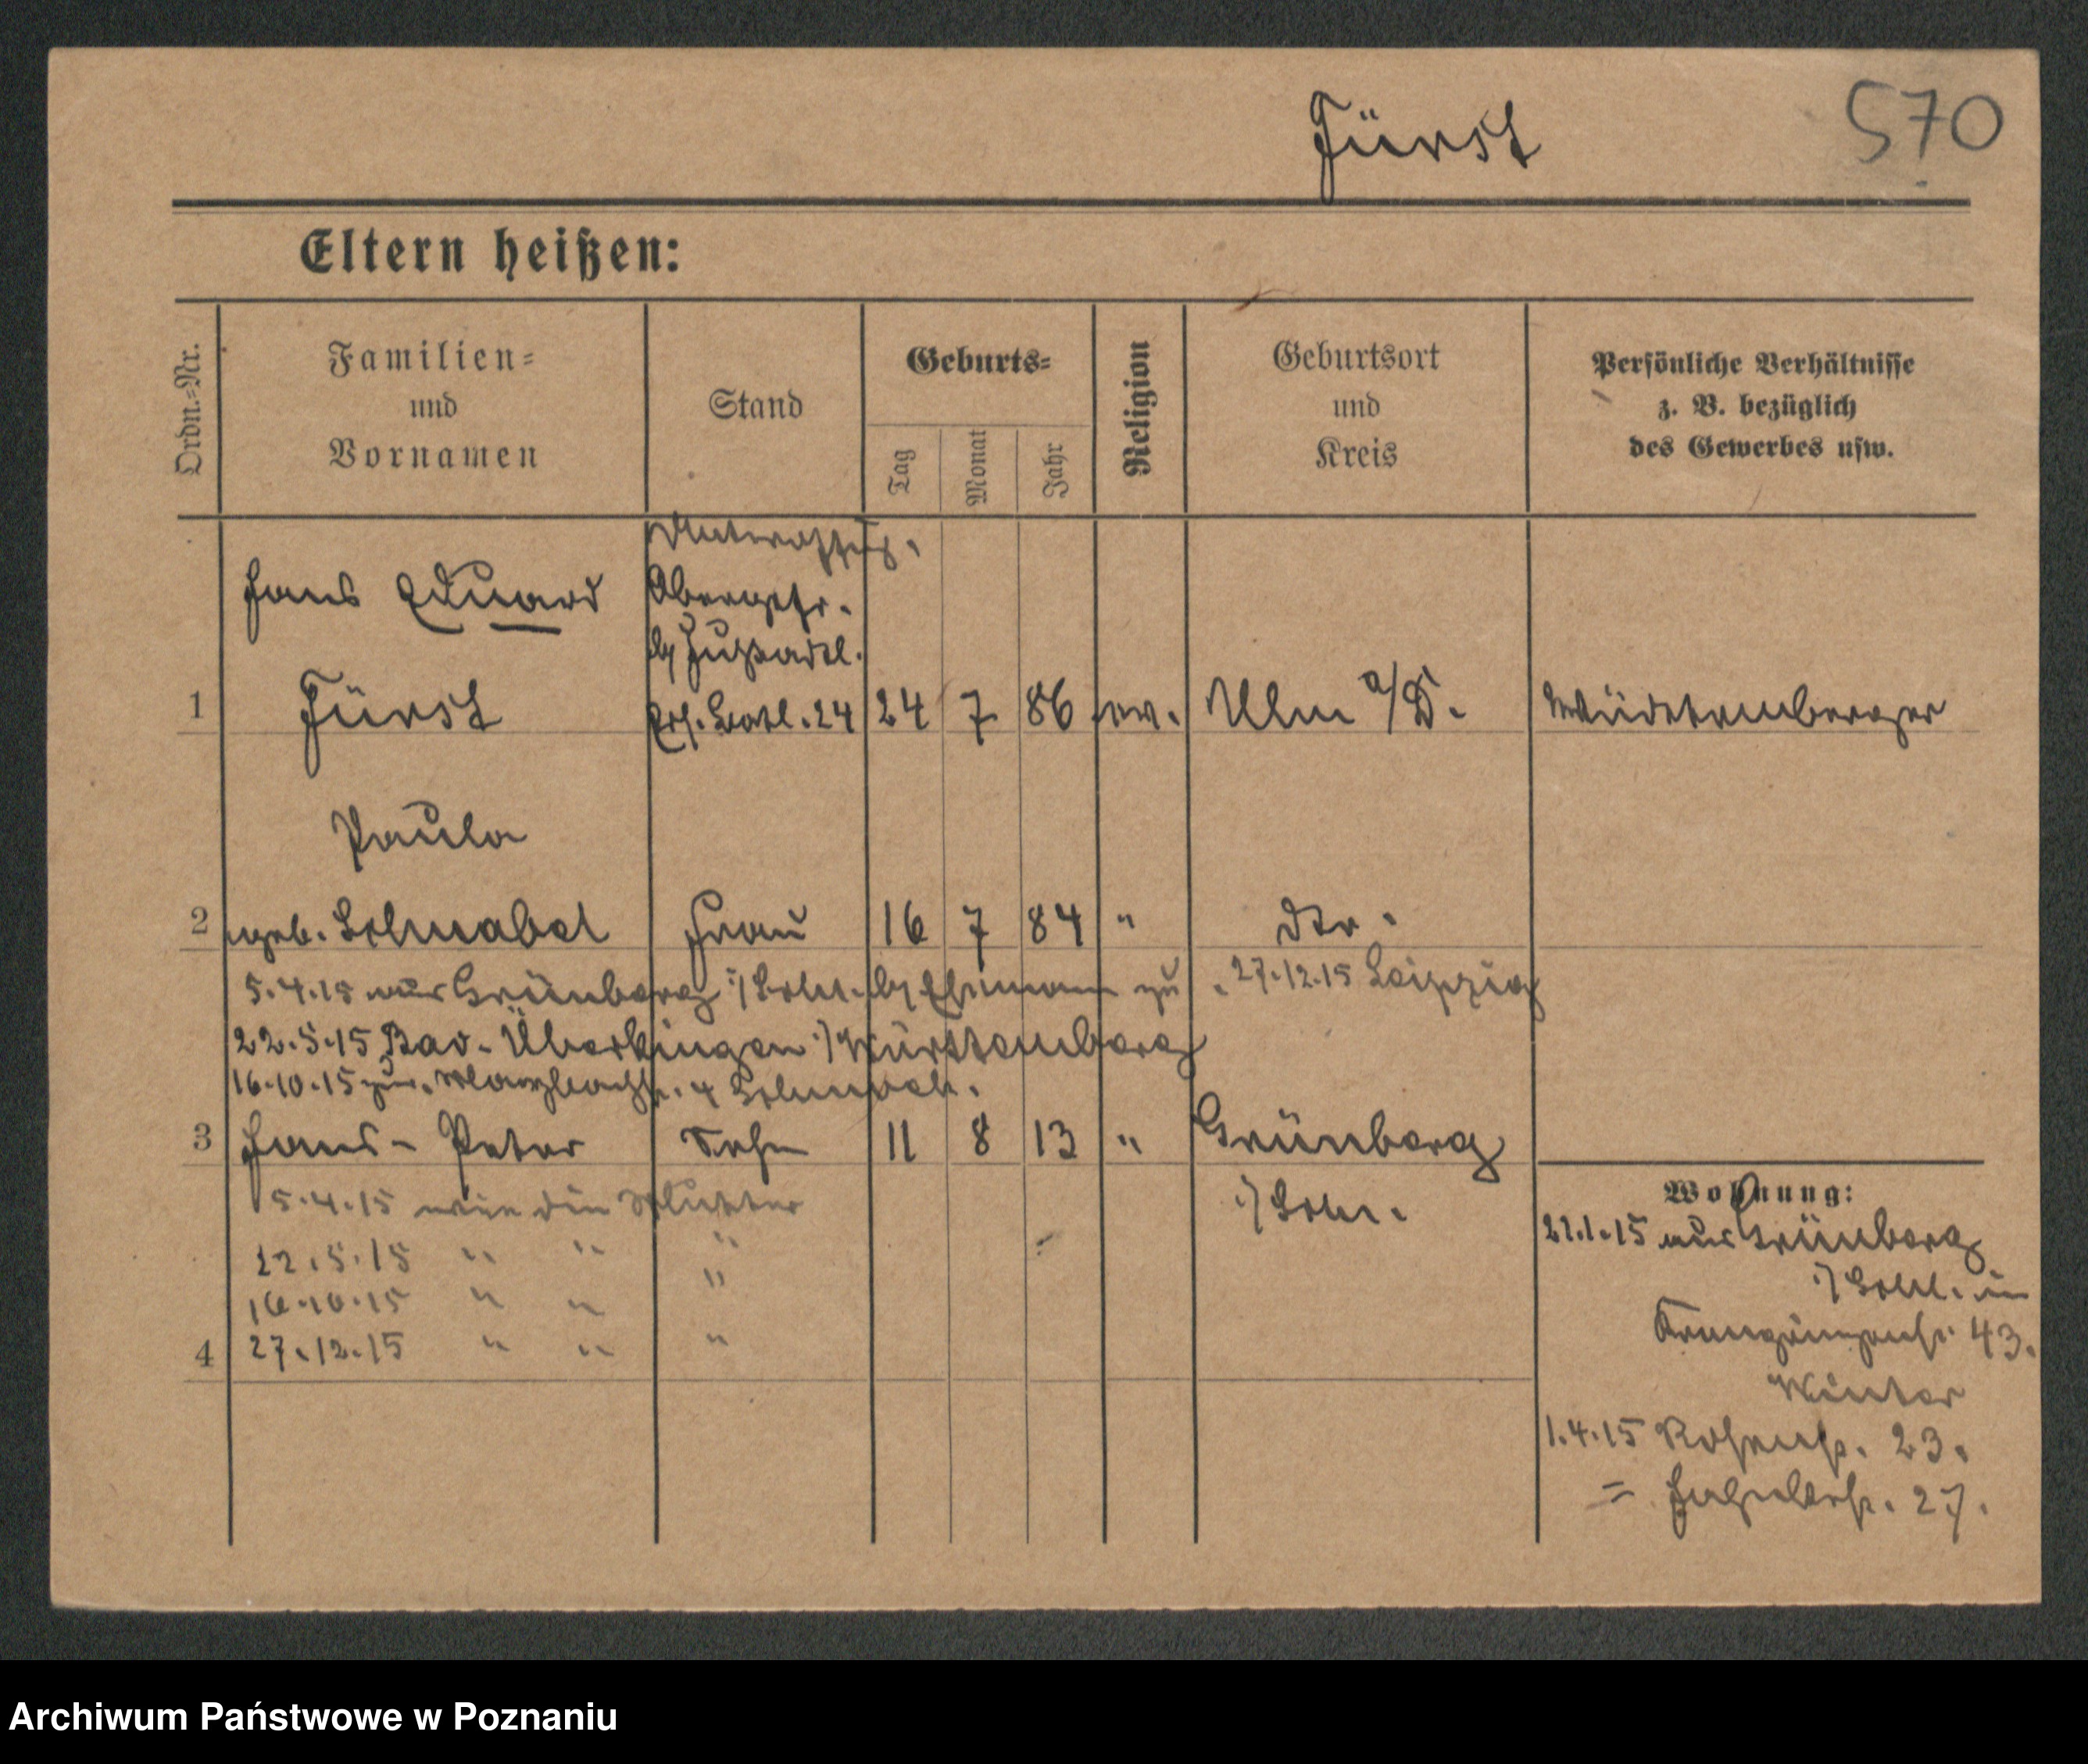 Fürst
570
Eltern heißen:
Ordn.=Nr.
Familien=
und
Vornamen
Stand
Geburts=
Tag
Monat
Jahr
Religion
Geburtsort
und
Kreis
Persönliche Verhältnisse
z. B. bezüglich
des Gewerbes usw.
Hans Eduard
Obergefr.
b/ Fußartl.
1 Fürst Ers. Batl. 24 24 7 86 ev. Ulm a/D. Württemberger
Paula
2 geb. Schnabel Frau 16 7 84 " dto.
5.4.15 aus Grünberg i/Schl. b/ Ehemann zu . 27.12.15 Leipzig
22.5.15 Bad-Überkingen i/Württemberg
16.10.15 zur. 4
3 Hans-Peter Sohn 11 8 13 " Grünberg
i/Schl.
5.4.15 wie die Mutter
22.5.15 " " "
16.10.15 " " "
4 27.12.15 " " "
Wohnung:
21.1.15 aus Grünberg
i/Schl. in
43.
Winter
1.4.15 23.
= 27.
Archiwum Państwowe w Poznaniu